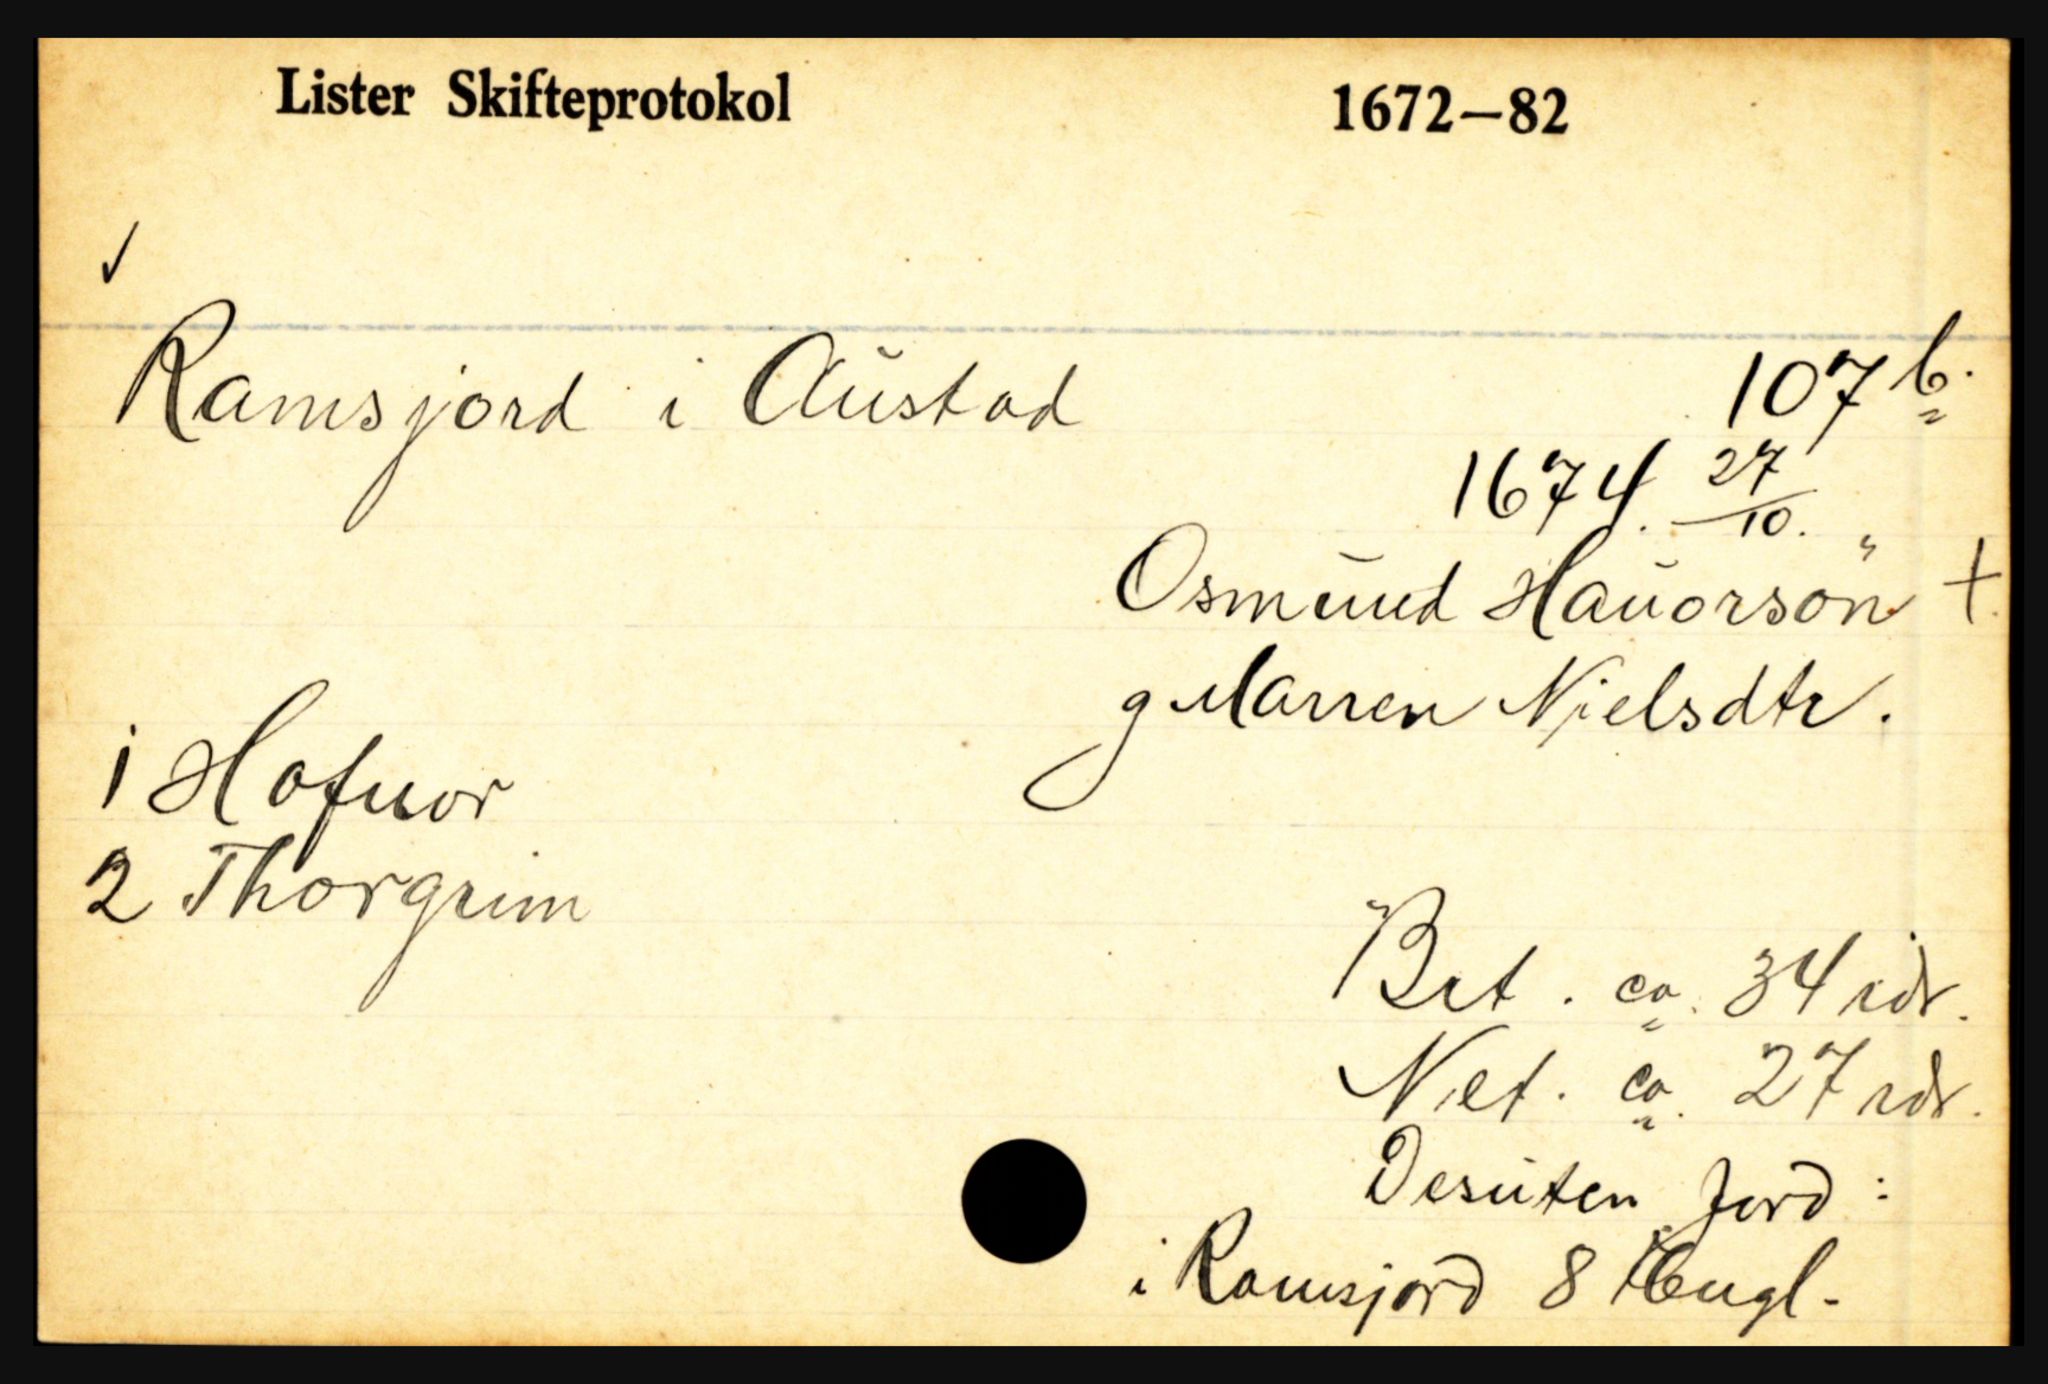 Lister Skifteprotokol 1672—82
Ramsjord i Austad 107 b.
1674. 27/10.
Osmund Hauorson +
g Marren Nielsdtr.
1 Hafuor
2 Thorgrim
Brt. ca. 34 rdr.
Net. ca. 27 rdr.
Desuten Jord :
i Ramsjord 8 Engl.